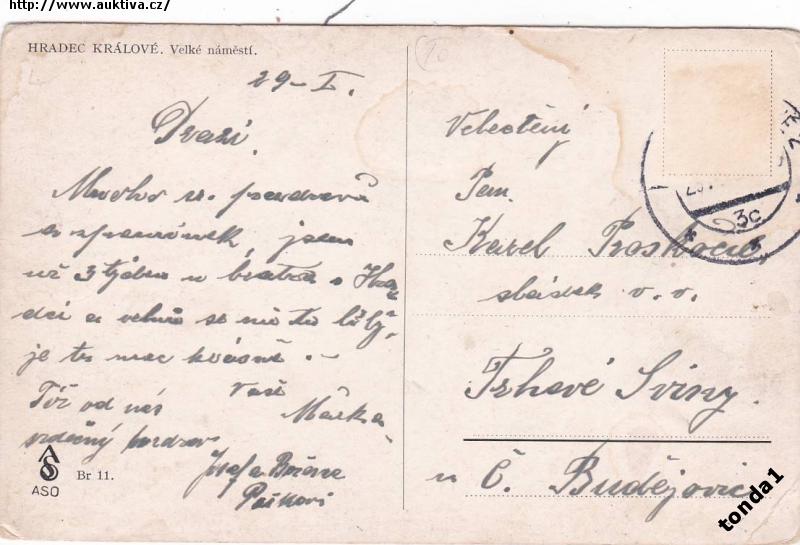 http://www.auktiva.cz/
HRADEC KRÁLOVÉ. Velké náměstí.
29-I.
Drazí
Mnoho sr. pozdravů
a vzpomínek, jsem
už 3 týdnu u bratra v Hra
dci a velmi se mě to líbí,
je tu moc krásně. -
Vaše
Mařka
Též od nás
srdečný pozdrav
Josef a Božena
Paškovi
ASO
Br 11.
Velectěný
Pan
Karel
sládek v. v.
Trhové Sviny.
u Č. Budějovic
3c
tonda1